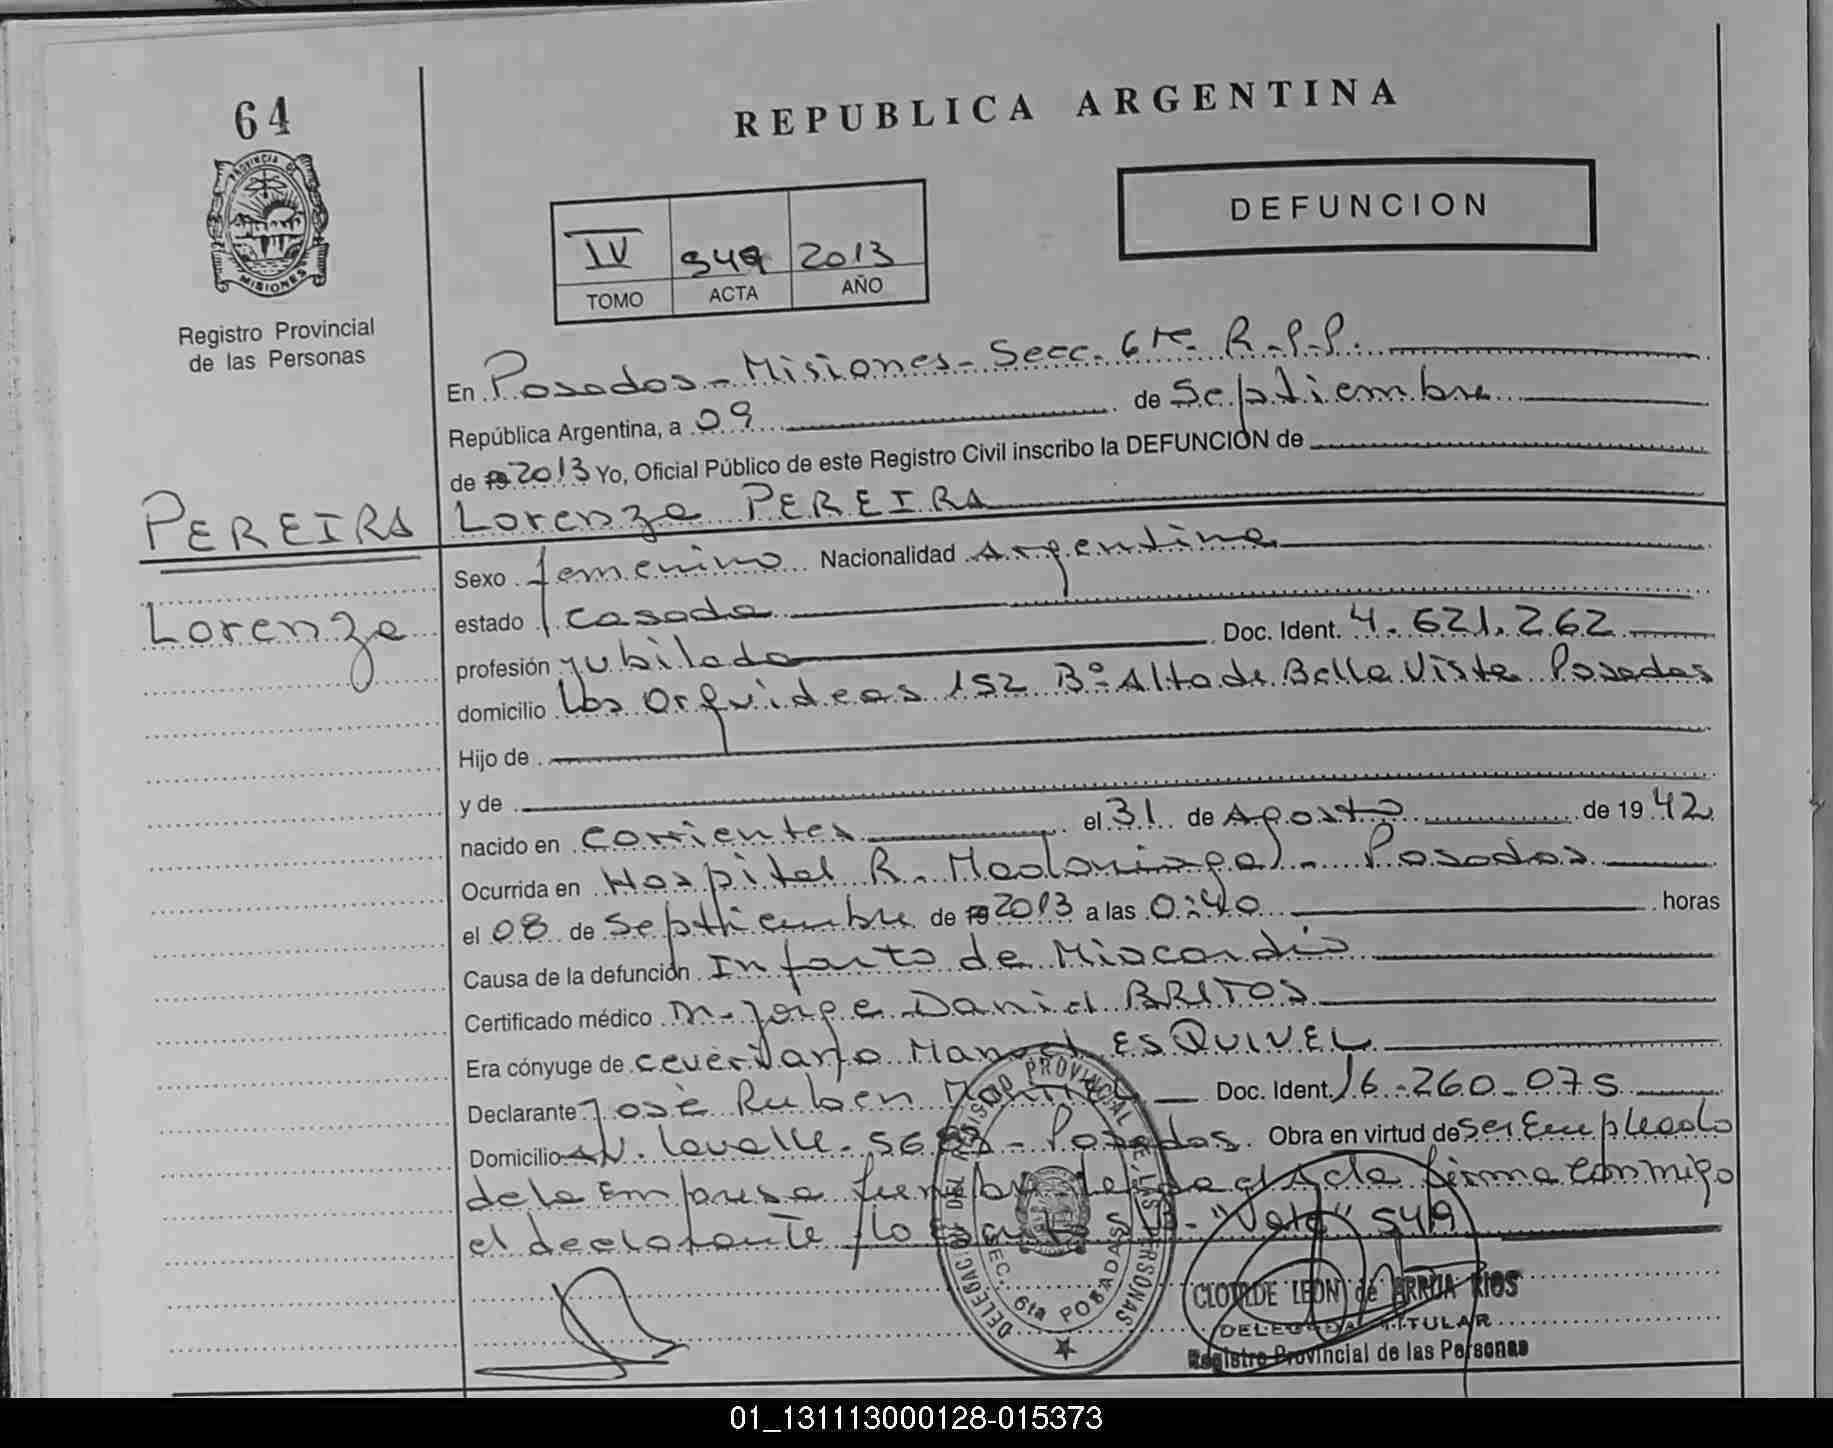 64
REPUBLICA ARGENTINA
PROVINCIA DE MISIONES
DEFUNCION
IV 949 2013
TOMO ACTA AÑO
Registro Provincial
de las Personas
En Posadas - Misiones - Secc. 6ta. R.P.P.
República Argentina, a 09 de Septiembre
de 2013 Yo, Oficial Público de este Registro Civil inscribo la DEFUNCION de
PEREIRA Lorenza PEREIRA
Sexo femenino Nacionalidad Argentina
Lorenza
estado casada
profesión jubilada Doc. Ident. 4.621.262
domicilio Las Orquideas 152 B° Alta de Bella Vista Posadas
Hijo de
y de
nacido en Corrientes el 31 de Agosto de 1942
Ocurrida en Hospital R. Madariaga - Posadas
el 08 de Septtiembre de 2013 a las 0:40 horas
Causa de la defunción Infarto de Miocardio
Certificado médico M. Jorge Daniel BRITOS
Era cónyuge de Manuel ESQUIVEL
Declarante José Ruben Doc. Ident. 16.260.075
Domicilio Av. Lavalle - Posadas. Obra en virtud de ser Empleado
de la Empresa firma conmigo
el declarante "Vale" 549
DELEGACION DEL REGISTRO PROVINCIAL DE LAS PERSONAS
SEC. 6ta POSADAS
CLOTILDE LEON de ARRUA RIOS
DELEGADA TITULAR
Registro Provincial de las Personas
01_131113000128-015373